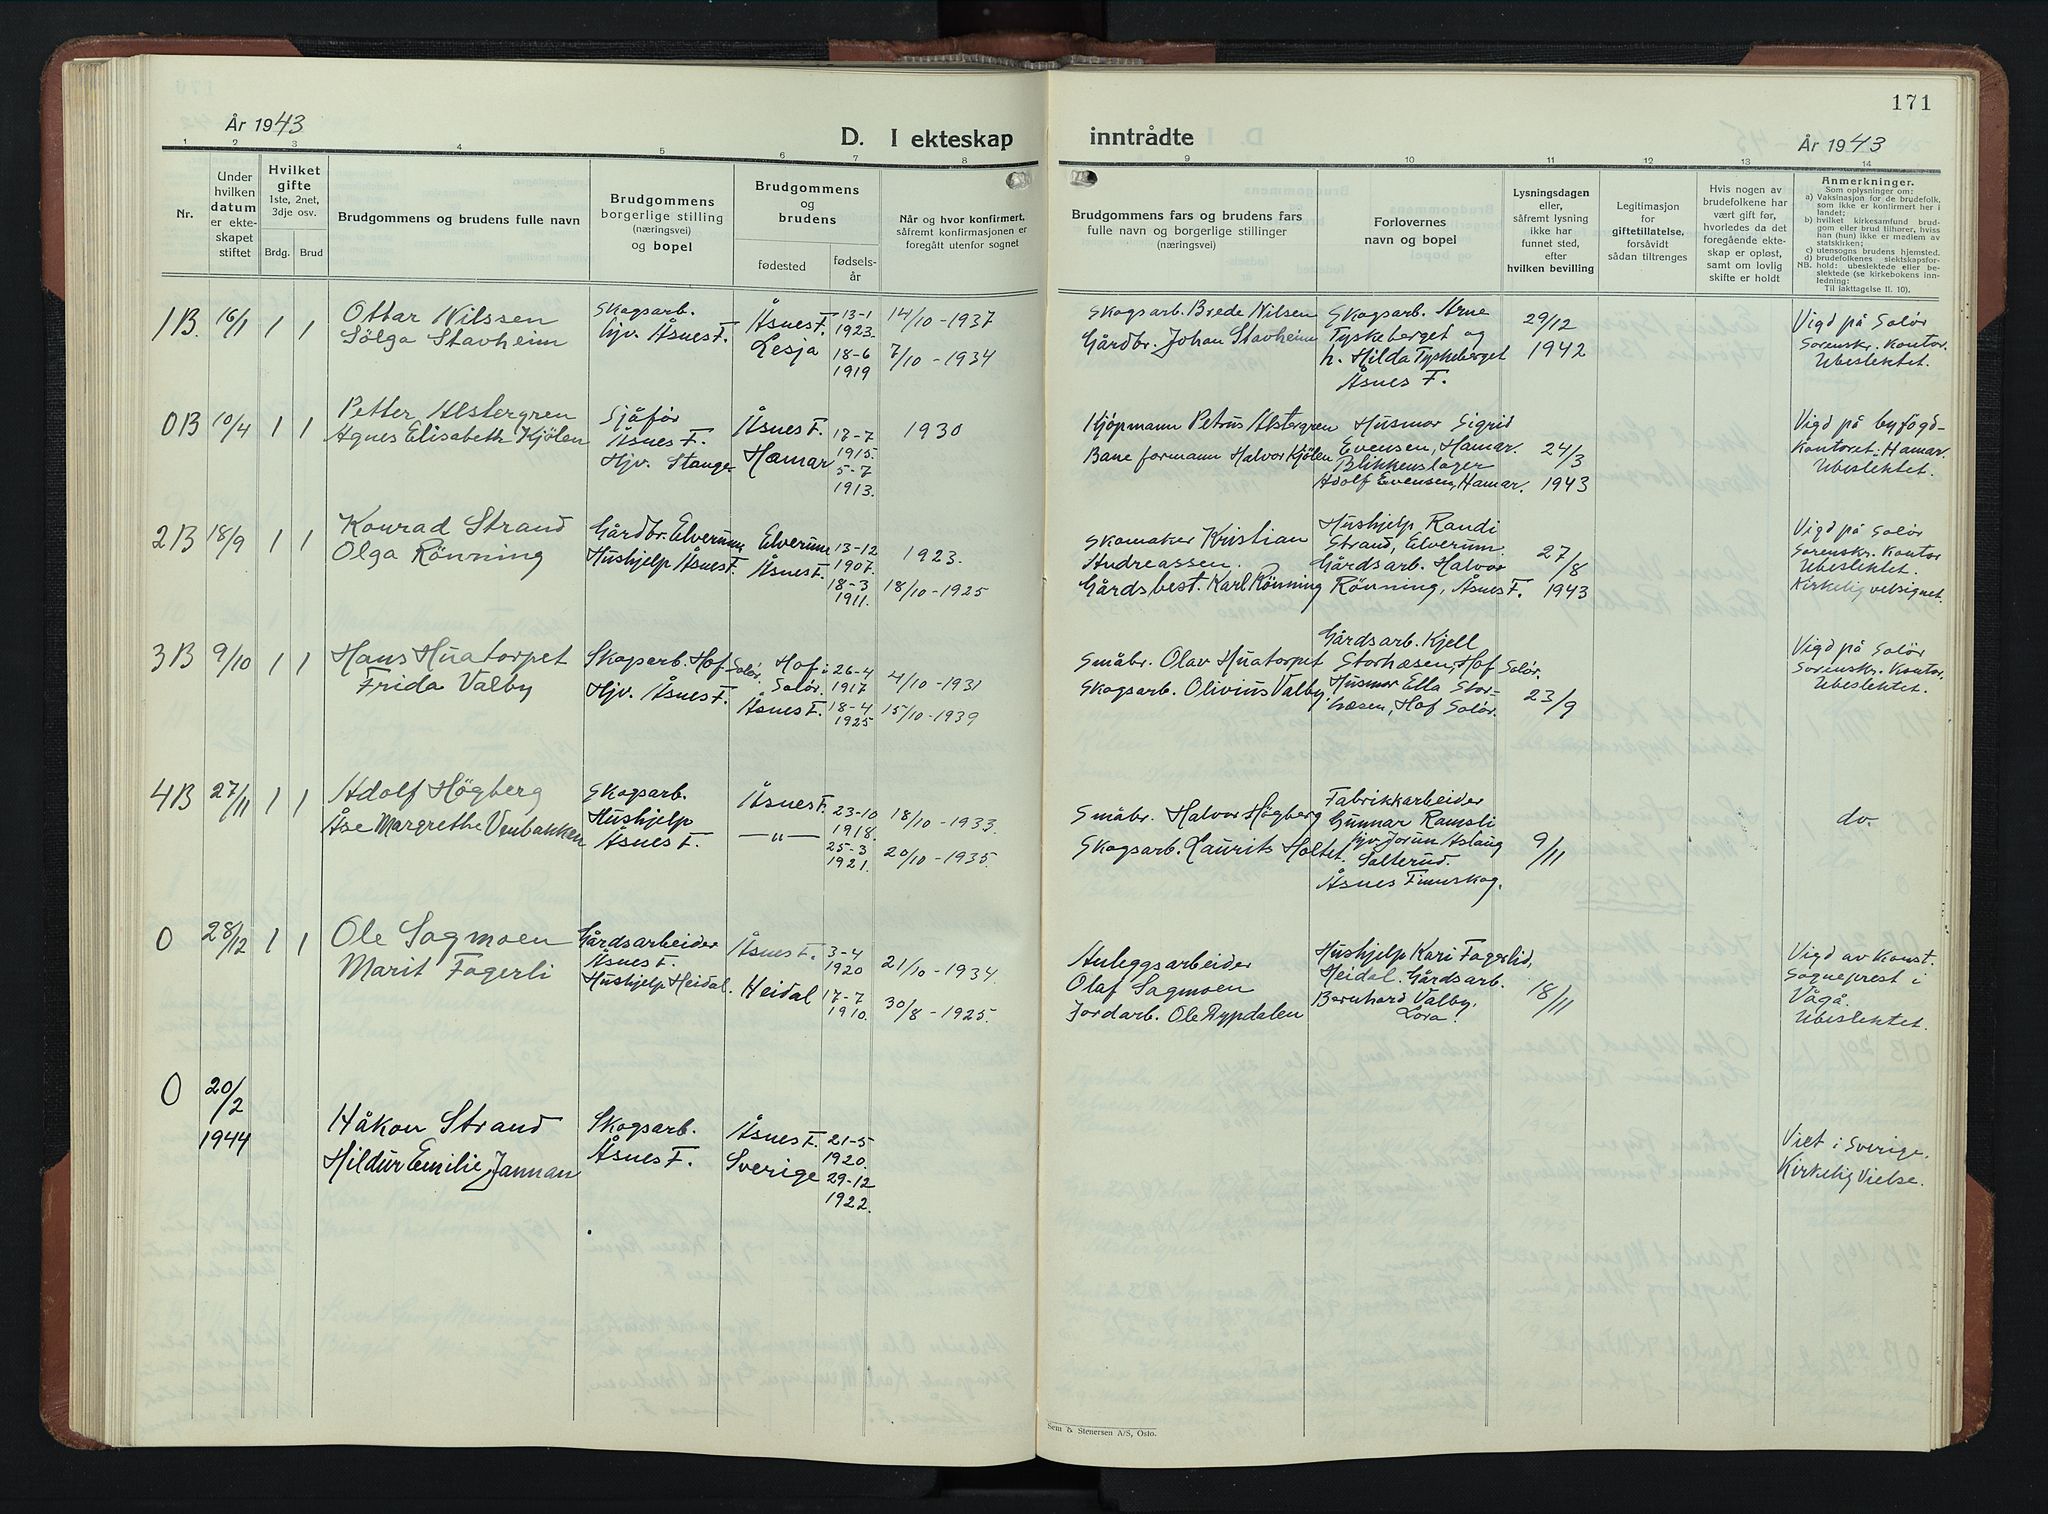 171
År 1943
D. I ekteskap
inntrådte
År 1943
1 2 3 4 5 6 7 8 9 10 11 12 13 14
Nr.
Under
hvilken
datum
er ekte-
skapet
stiftet
Hvilket
gifte
1ste, 2net,
3dje osv.
Brdg. Brud
Brudgommens og brudens fulle navn
Brudgommens
borgerlige stilling
(næringsvei)
og bopel
Brudgommens
og
brudens
fødested
fødsels-
år
Når og hvor konfirmert,
såfremt konfirmasjonen er
foregått utenfor sognet
Brudgommens fars og brudens fars
fulle navn og borgerlige stillinger
(næringsvei)
Forlovernes
navn og bopel
Lysningsdagen
eller,
såfremt lysning
ikke har
funnet sted,
efter
hvilken bevilling
Legitimasjon
for
giftetillatelse,
forsåvidt
sådan tiltrenges
Hvis nogen av
brudefolkene har
vært gift før,
hvorledes da det
foregående ekte-
skap er opløst,
samt om lovlig
skifte er holdt
Anmerkninger.
Som oplysninger om:
a) Vaksinasjon for de brudefolk,
som ikke er konfirmert her i
landet;
b) hvilket kirkesamfund brud-
gom eller brud tilhører, hviss
han (hun) ikke er medlem av
statskirken;
c) utensogns brudens hjemsted.
d) brudefolkenes slektskapsfor-
NB. hold: ubeslektede eller be-
slektede (se kirkebokens inn-
ledning:
Til iakttagelse II. 10).
1B. 16/1 1 1
Ottar Nilssen
Sölga Stavheim
Skogsarb.
hjv. Åsnes F.
Åsnes F.
Lesja
13-1
1923.
18-6
1919
14/10-1937
7/10-1934
Skogsarb. Brede Nilsen
Gårdbr. Johan Stavheim
Skogsarb. Arne
Tyskeberget og
h. Hilda Tyskeberget
Åsnes F.
29/12
1942
Vigd på Solør
Sorenskr. Kontor.
Ubeslektet.
0B 10/4 1 1
Petter Alstergren
Agnes Elisabeth Kjølen
Sjåfør
Åsnes F.
Hjv. Stange
Åsnes F.
Hamar
17-7
1915
5-7
1913.
1930
Kjøpmann Petrus Alstergren
Bane formann Halvor Kjølen
Husmor Sigrid
Evensen, Hamar.
Blikkenslager
Adolf Evensen, Hamar.
24/3
1943
Vigd på byfogd-
kontoret. Hamar.
Ubeslektet.
2B 18/9 1 1
Konrad Strand
Olga Rönning
Gårdbr. Elverum
Hushjelp Åsnes F.
Elverum
Åsnes F.
13-12
1907.
18-3
1911.
1923.
18/10-1925
Skomaker Kristian
Andreassen.
Gårdsbest. Karl Rønning
Hushjelp Randi
Strand, Elverum.
Gårdsarb. Halvor
Rönning, Åsnes F.
27/8
1943
Vigd på Solør
Sorenskr. Kontor
Ubeslektet.
Kirkelig velsignet.
3B 9/10 1 1
Hans Huatorpet
Frida Valby
Skogsarb. Hof Solør.
Hjv. Åsnes F.
Hof i
Solør.
Åsnes F.
26-4
1917
18-4
1925
4/10-1931
15/10-1939
Småbr. Olav Huatorpet
Skogsarb. Olivius Valby.
Gårdsarb. Kjell
Storhæsen, Hof Solør.
Husmor Ella Stor-
hæsen, Hof Solør.
23/9
Vigd på Solør
Sorenskr. Kontor.
Ubeslektet.
4B 27/11 1 1
Adolf Högberg
Åse Margrethe Venbakken
Skogsarb.
Hushjelp
Åsnes F.
Åsnes F.
— " —
23-10
1918.
25-3
1921.
18/10-1933.
20/10-1935.
Småbr. Halvor Högberg
Skogsarb. Laurits Holtet.
Fabrikkarbeider
Gunnar Ramsli
hjv. Jorun Aslaug
Salterud.
Åsnes Finnskog.
9/11
do.
0 28/12 1 1
Ole Sagmoen
Marit Fagerli
Gårdsarbeider
Åsnes F.
Hushjelp Heidal.
Åsnes F.
Heidal
3-4
1920
17-7
1910.
21/10-1934.
30/8-1925.
Anleggsarbeider
Olaf Sagmoen
Jordarb. Ole Rypdalen
Hushjelp Kari Fagerlid,
Heidal. Gårdsarb.
Bernhard Valby,
Lora.
18/11
Vigd av Konst.
Sogneprest i
Vågå.
Ubeslektet.
0 20/2
1944
Håkon Strand
Hildur Emilie Janman
Skogsarb.
Åsnes F.
Åsnes F.
Sverige
21-5
1920.
29-12
1922.
Viet i Sverige.
Kirkelig Vielse.
Sem & Stenersen A/S, Oslo.